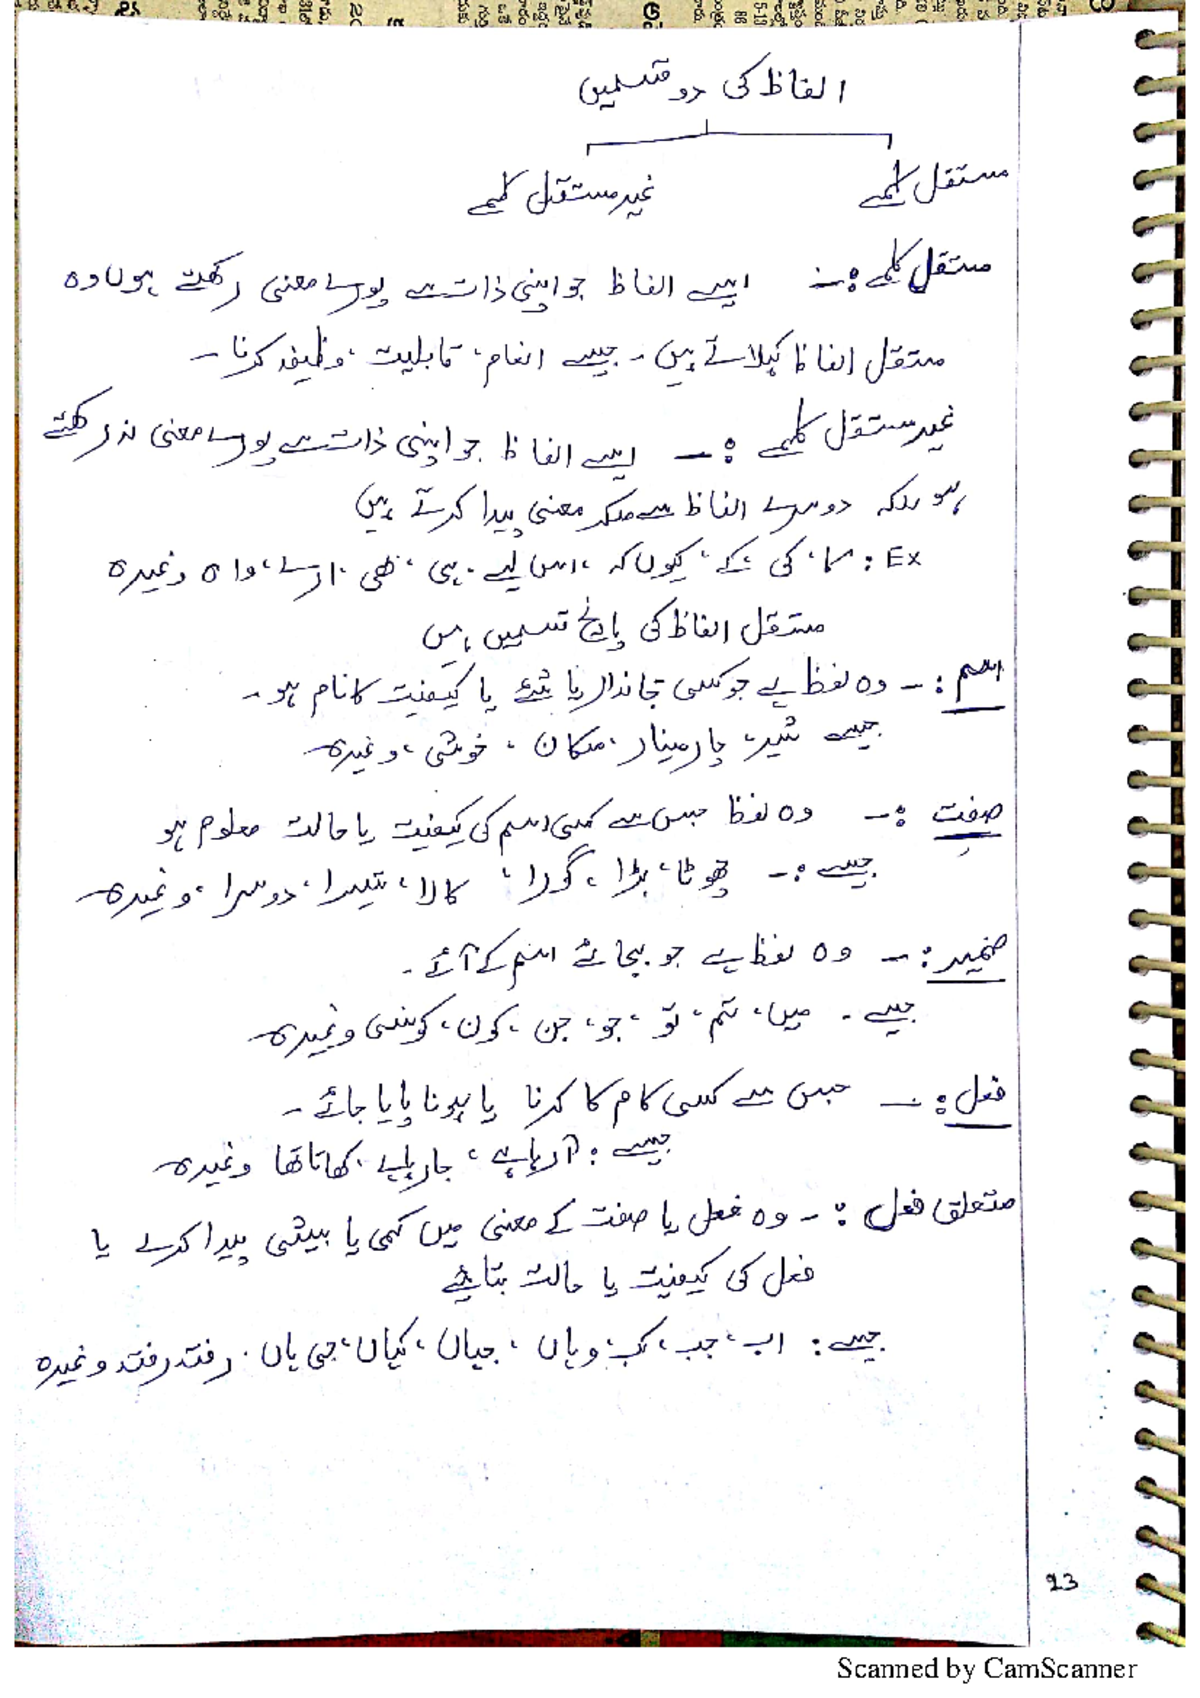 الفاظ کی دو قسمیں
مستقل کلمے
غیر مستقل کلمے
مستقل کلمے :۔ ایسے الفاظ جو اپنی ذات سے پورے معنی رکھتے ہوں وہ
مستقل الفاظ کہلاتے ہیں ۔ جیسے انعام، قابلیت، وظیفہ کرنا ۔
غیر مستقل کلمے :۔ ایسے الفاظ جو اپنی ذات سے پورے معنی نہ رکھتے
ہو بلکہ دوسرے الفاظ سے ملکر معنی پیدا کرتے ہیں
Ex : کا، کی، کے، کیوں کہ، اس لیے، ہی، بھی، ارے، واہ وغیرہ
مستقل الفاظ کی پانچ قسمیں ہیں
اسم :۔ وہ لفظ ہے جو کسی جاندار یا شئے یا کیفیت کا نام ہو ۔
جیسے شیر، چارمینار، مکان، خوشی، وغیرہ
صفت :۔ وہ لفظ جس سے کسی اسم کی کیفیت یا حالت معلوم ہو
جیسے :۔ چھوٹا، بڑا، گورا، کالا، تیسرا، دوسرا، وغیرہ
ضمیر :۔ وہ لفظ ہے جو بجائے اسم کے آئے ۔
جیسے ۔ میں، تم، تو، جو، جن، کون، کونسی وغیرہ
فعل :۔ جس سے کسی کام کا کرنا یا ہونا پایا جائے ۔
جیسے : آرہا ہے، جارہا ہے، کھاتا تھا وغیرہ
متعلق فعل :۔ وہ فعل یا صفت کے معنی میں کمی یا بیشی پیدا کرے یا
فعل کی کیفیت یا حالت بتائے
جیسے : اب، جب، کب، وہاں، جہاں، کہاں، جی ہاں، رفتہ رفتہ وغیرہ
23
Scanned by CamScanner